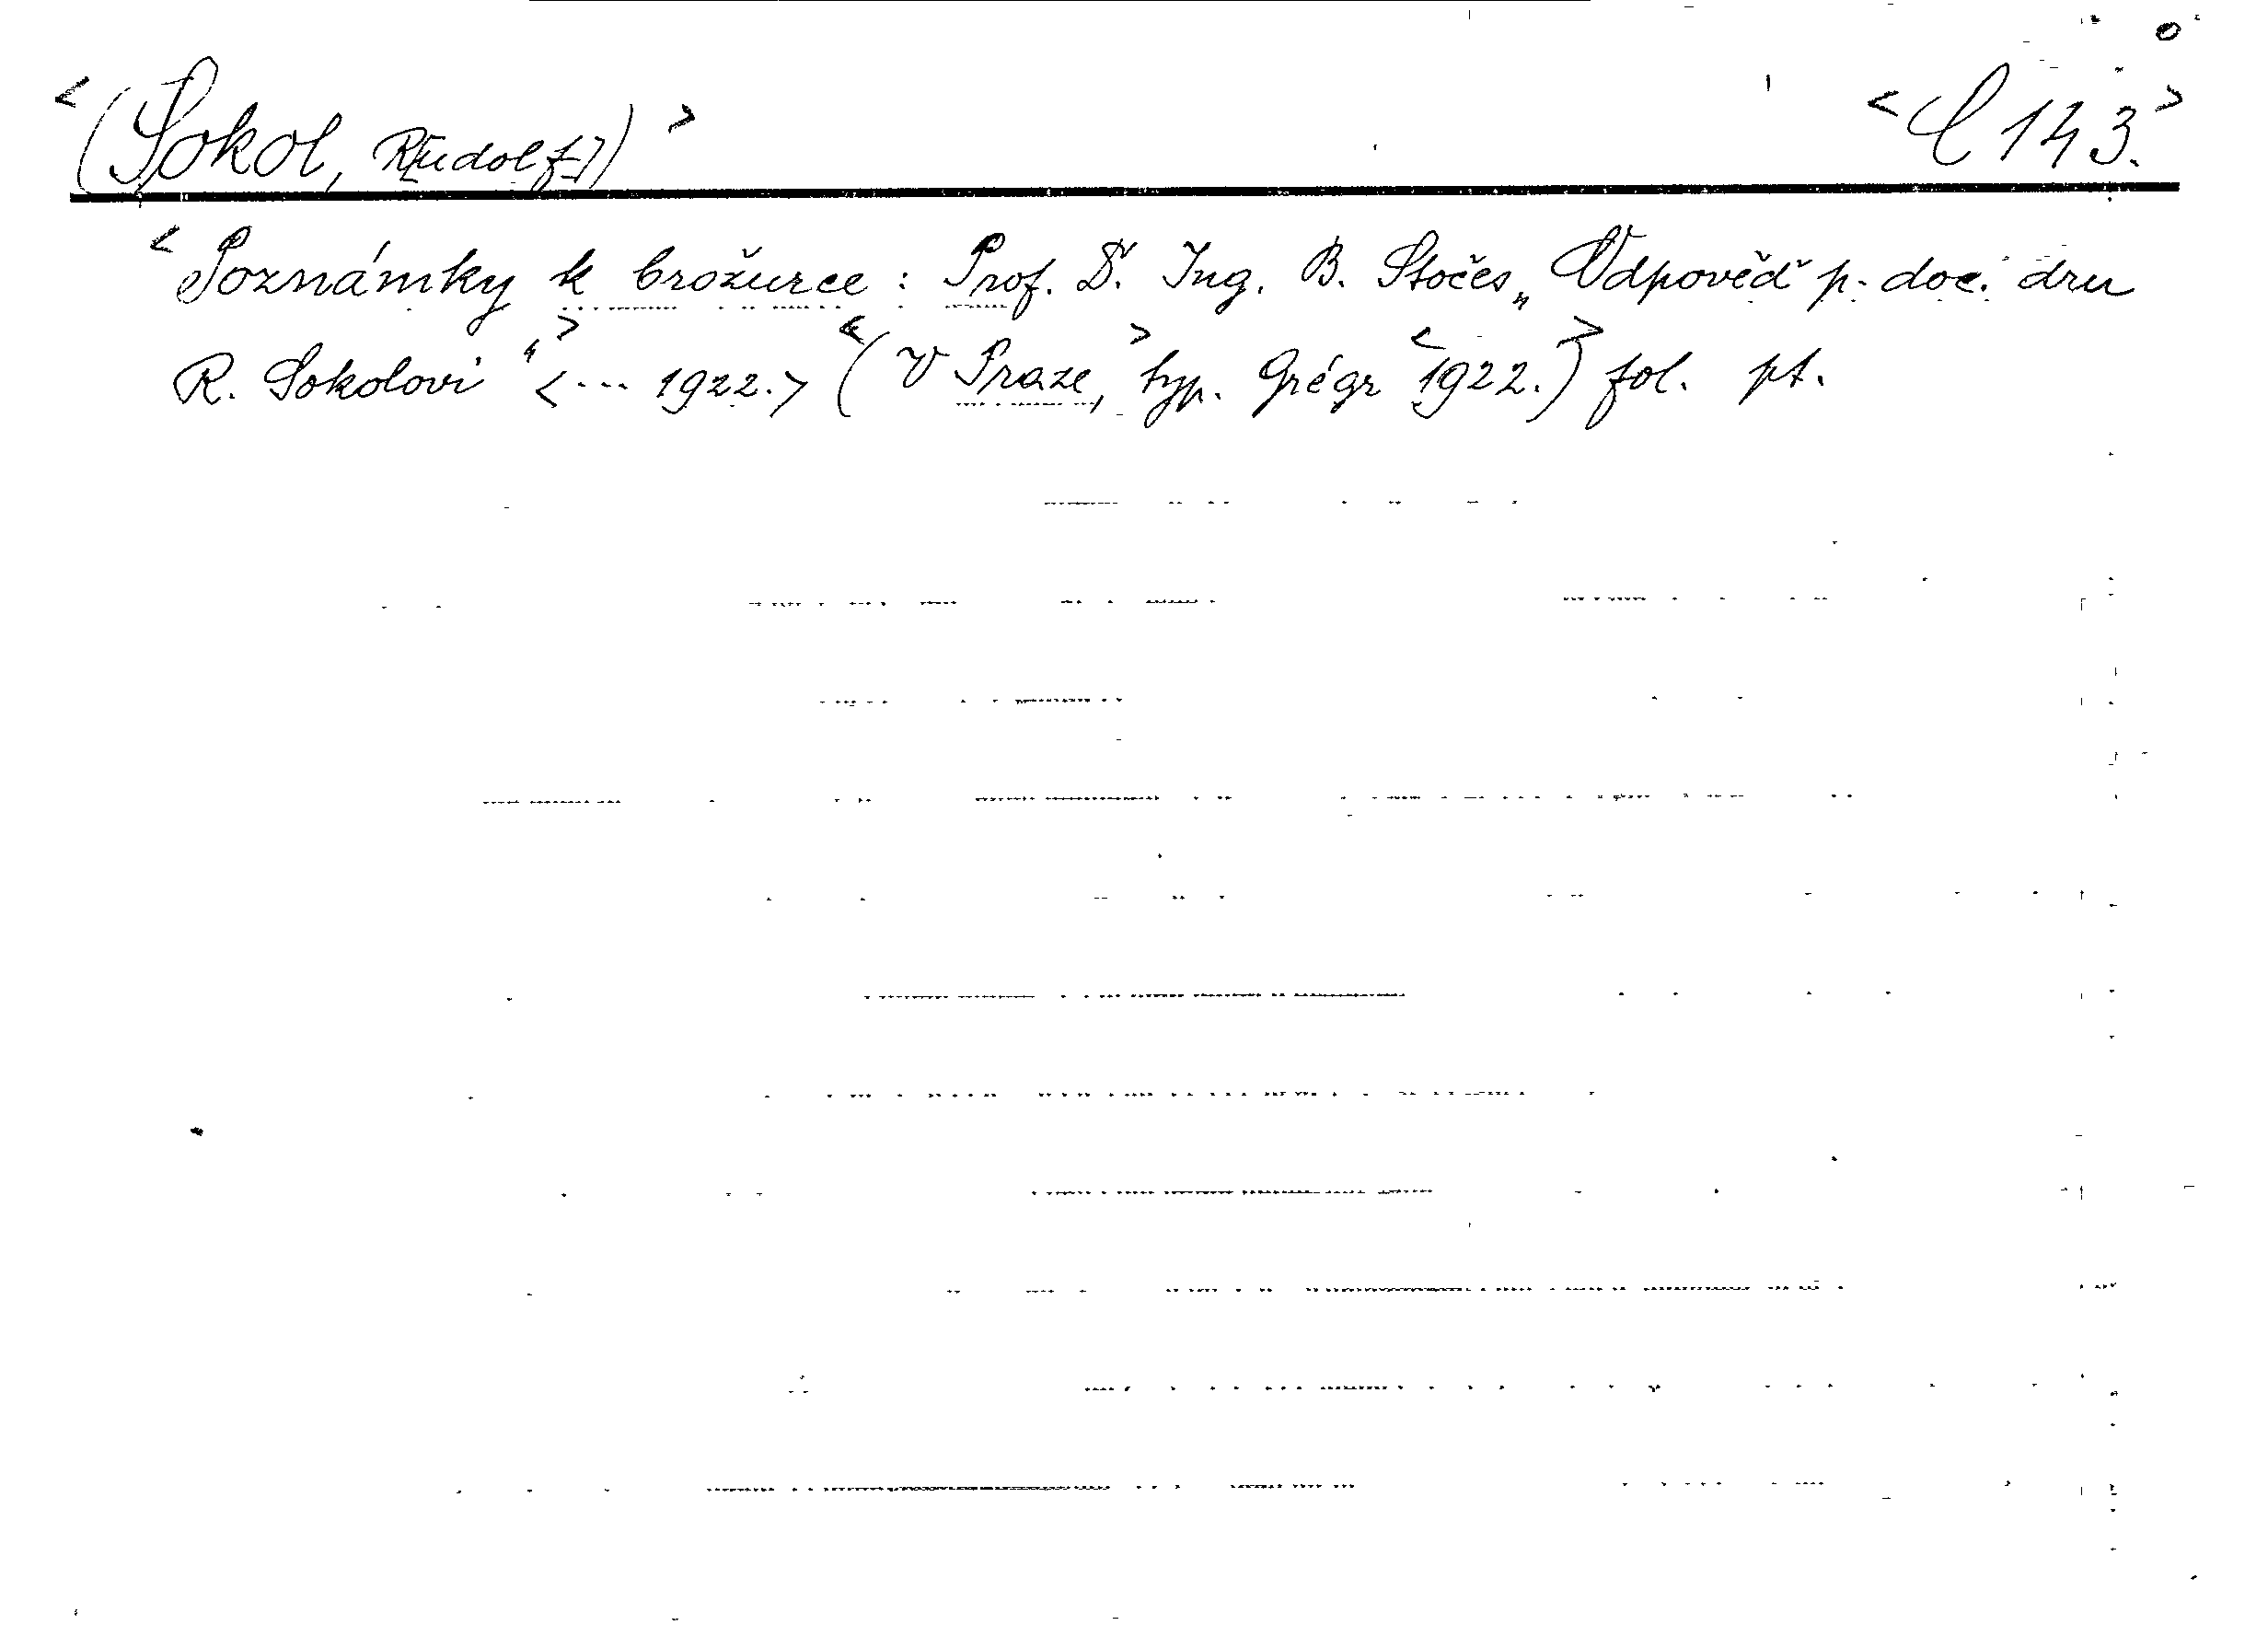 <(Sokol, R[udolf])> <C 143.>
<Poznámky k brožurce : Prof. Dr. Ing. B. Stočes „Odpověď p. doc. dru
R. Sokolovi“> <--- 1922.> <(V Praze,> typ. Grégr <1922.)> fol. pt.